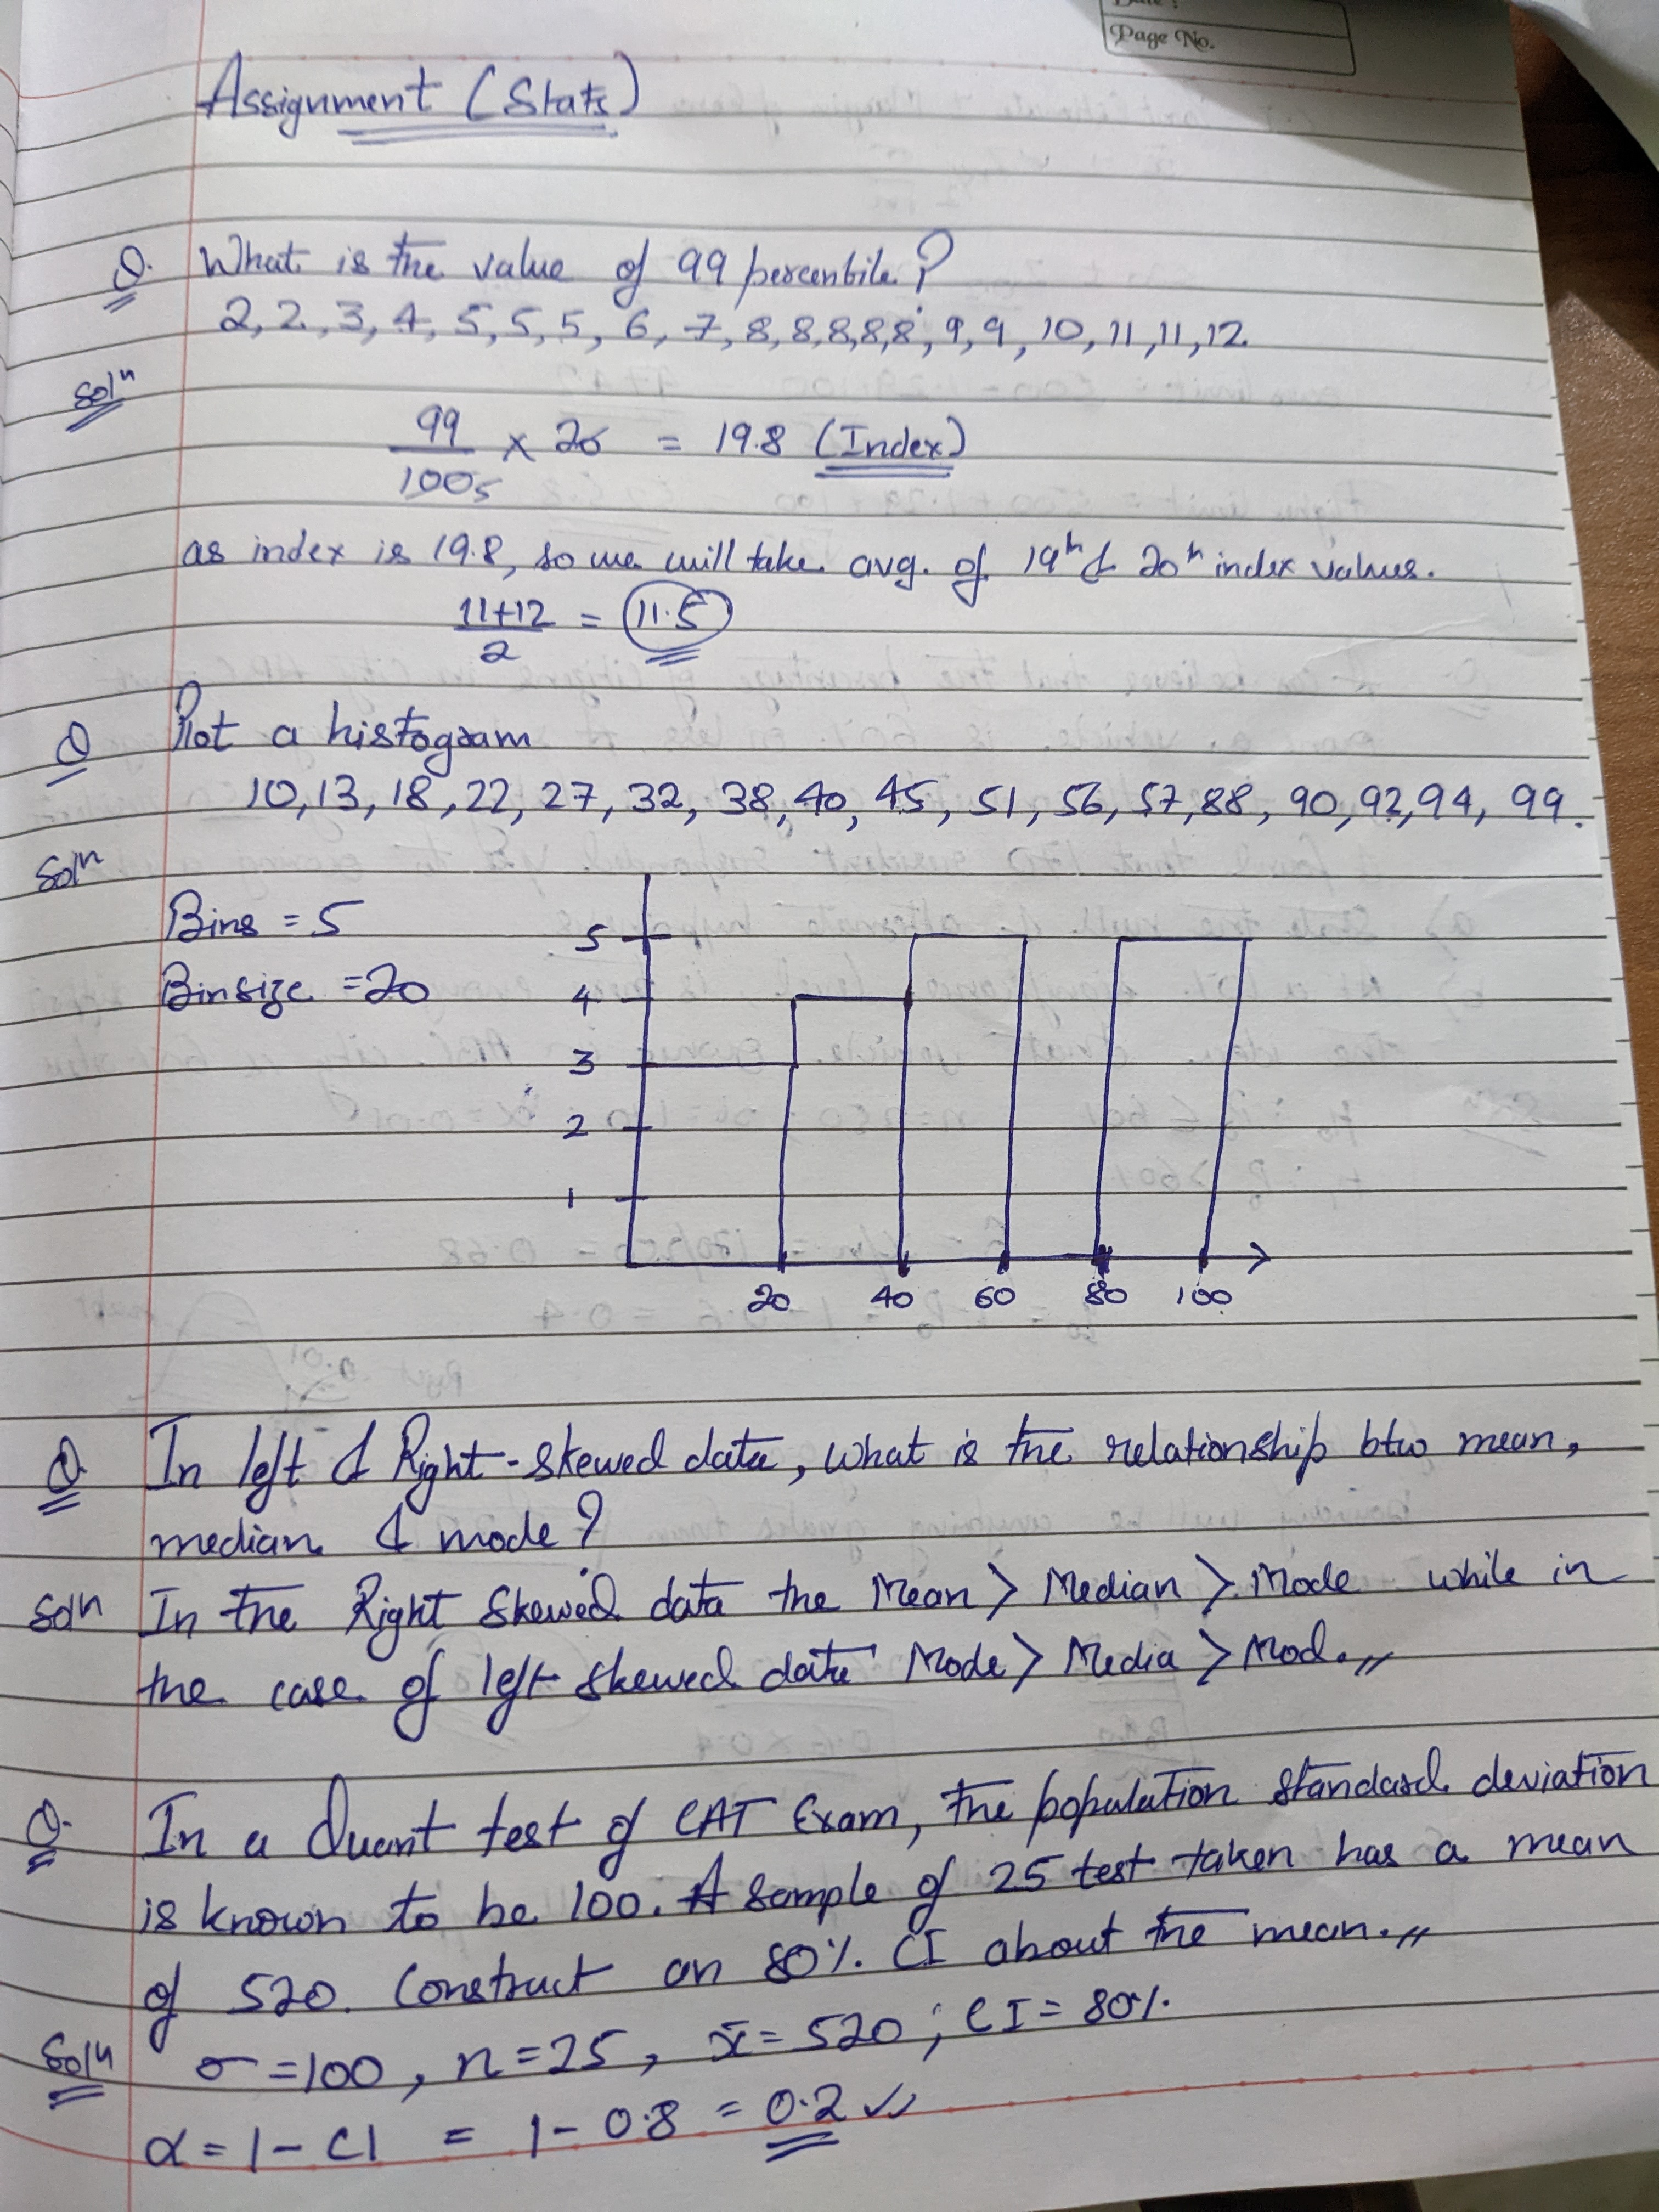 Date :
Page No.
Assignment (Stats)
Q. What is the value of 99 percentile?
2, 2, 3, 4, 5, 5, 5, 6, 7, 8, 8, 8, 8, 8, 9, 9, 10, 11, 11, 12
Solⁿ
99/100 5 × 20 = 19.8 (Index)
as index is 19.8, so we will take avg. of 19ᵗʰ & 20ᵗʰ index values.
11+12/2 = 11.5
Q Plot a histogram
10, 13, 18, 22, 27, 32, 38, 40, 45, 51, 56, 57, 88, 90, 92, 94, 99.
Solⁿ
Bins = 5
Binsize = 20
5
4
3
2
1
20 40 60 80 100
Q In left & Right-skewed data, what is the relationship btw mean,
median & mode?
Solⁿ In the Right Skewed data the Mean > Median > Mode while in
the case of left skewed data Mode > Media > Mod.
Q. In a Quant test of CAT Exam, the population standard deviation
is known to be 100. A sample of 25 test taken has a mean
of 520. Construct an 80% CI about the mean.
Solⁿ σ = 100, n = 25, x̄ = 520 ; CI = 80%.
α = 1 - CI = 1 - 0.8 = 0.2